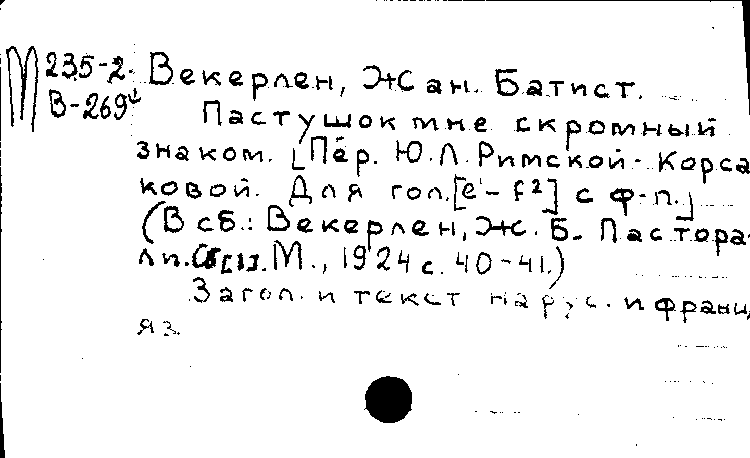 М 235-2 Векерлен, Жан. Батист.
В-269 Пастушок мне скромный
знаком. [Пер. Ю.Л. Римской-Корса
ковой. Для гол. [e¹-f²] с ф-п.]
(В сб.: Векерлен, Ж. Б. Пастора-
ли. Сб[1]. М., 1924 с. 40-41.)
Загол. и текст на рус. и франц.
яз.